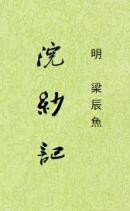 明 梁辰魚
浣紗記